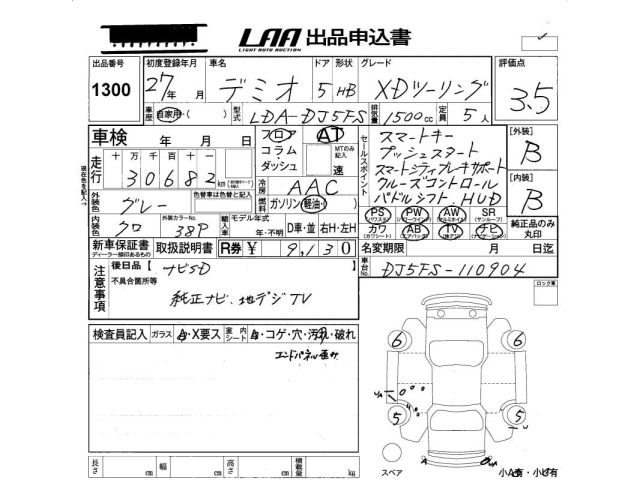 LAA 出品申込書
LIGHT AUTO AUCTION
出品番号 初度登録年月 車名 ドア 形状 グレード 評価点
1300 27年 月 デミオ 5 HB XDツーリング 3.5
車歴 自家用・( ) 型式 LDA-DJ5FS 排気量 1500cc 定員 5人
車検 年 月 日
フロア AT
コラム・ダッシュ MTのみ記入 速
走行 十 万 千 百 十 一
30682 km
冷房 AAC
外装色 グレー 色替車は色替と記入
燃料 ガソリン・軽油・
内装色 クロ 外装カラーNo. 38P
輸入車 モデル年式 年・不明 D車・並 右H・左H
新車保証書 取扱説明書 R券 ¥ 9,130
ディーラー捺印あるもの
セールスポイント
スマートキー
プッシュスタート
スマートシティブレーキサポート
クルーズコントロール
パドルシフト、HUD
PS PW AW SR
(パワステ) (パワーウインド) (サンルーフ)
カワ AB TV ナビ
(カワシート) (エアバッグ) (ナビゲーション)
[外装] B
[内装] B
純正品のみ丸印
名変期限 月 日迄
車台No. DJ5FS-110904
現在色を記入→
注意事項
後日品【 ナビSD 】
不具合箇所等
純正ナビ、地デジTV
ロック車
検査員記入 ガラス ・X要ス 室内シート ・コゲ・穴・汚れ・破れ
エンドパネル歪み
6 6
5 5
スペア
長さ cm 幅 cm 高さ cm 積載量 kg